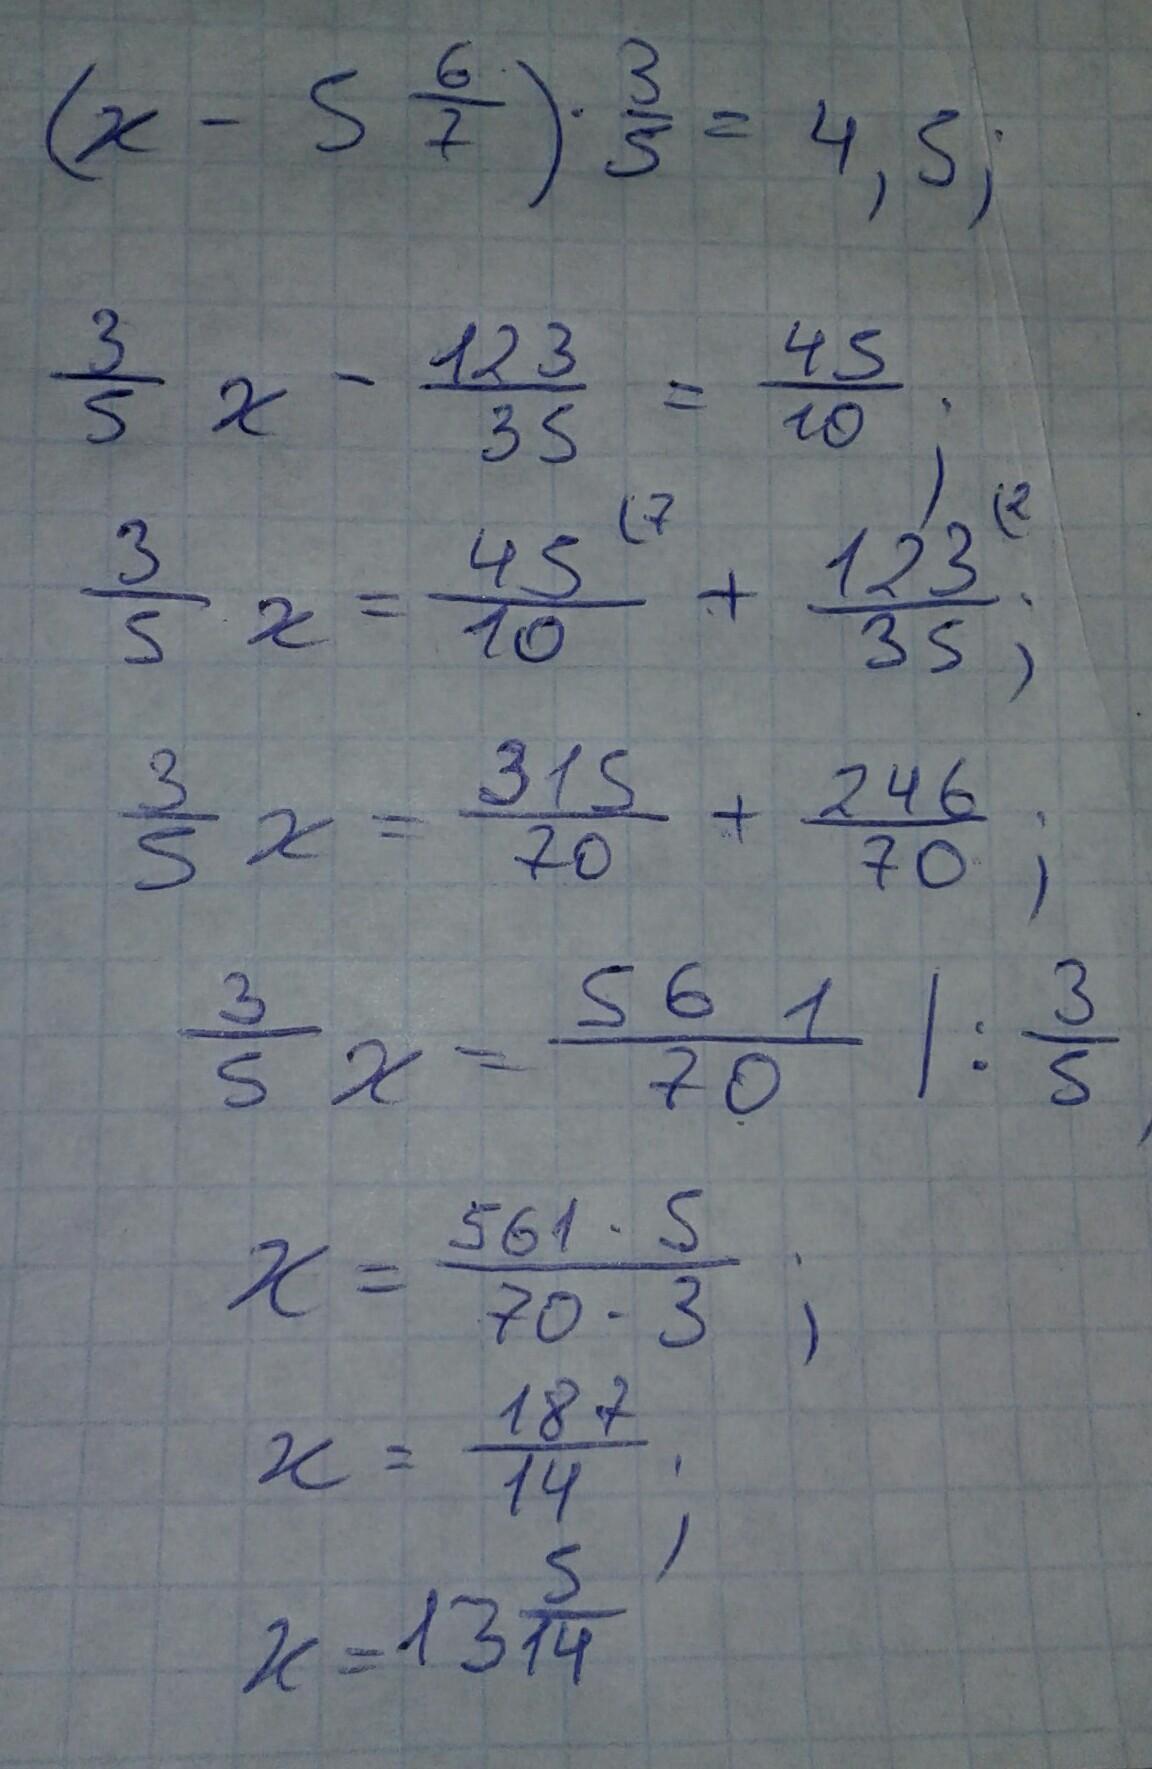 (x - 5 6/7) · 3/5 = 4,5;
3/5 x - 123/35 = 45/10;
3/5 x = 45/10 (7 + 123/35 (2;
3/5 x = 315/70 + 246/70;
3/5 x = 561/70 | : 3/5,
x = 561 · 5/70 · 3;
x = 187/14;
x = 13 5/14